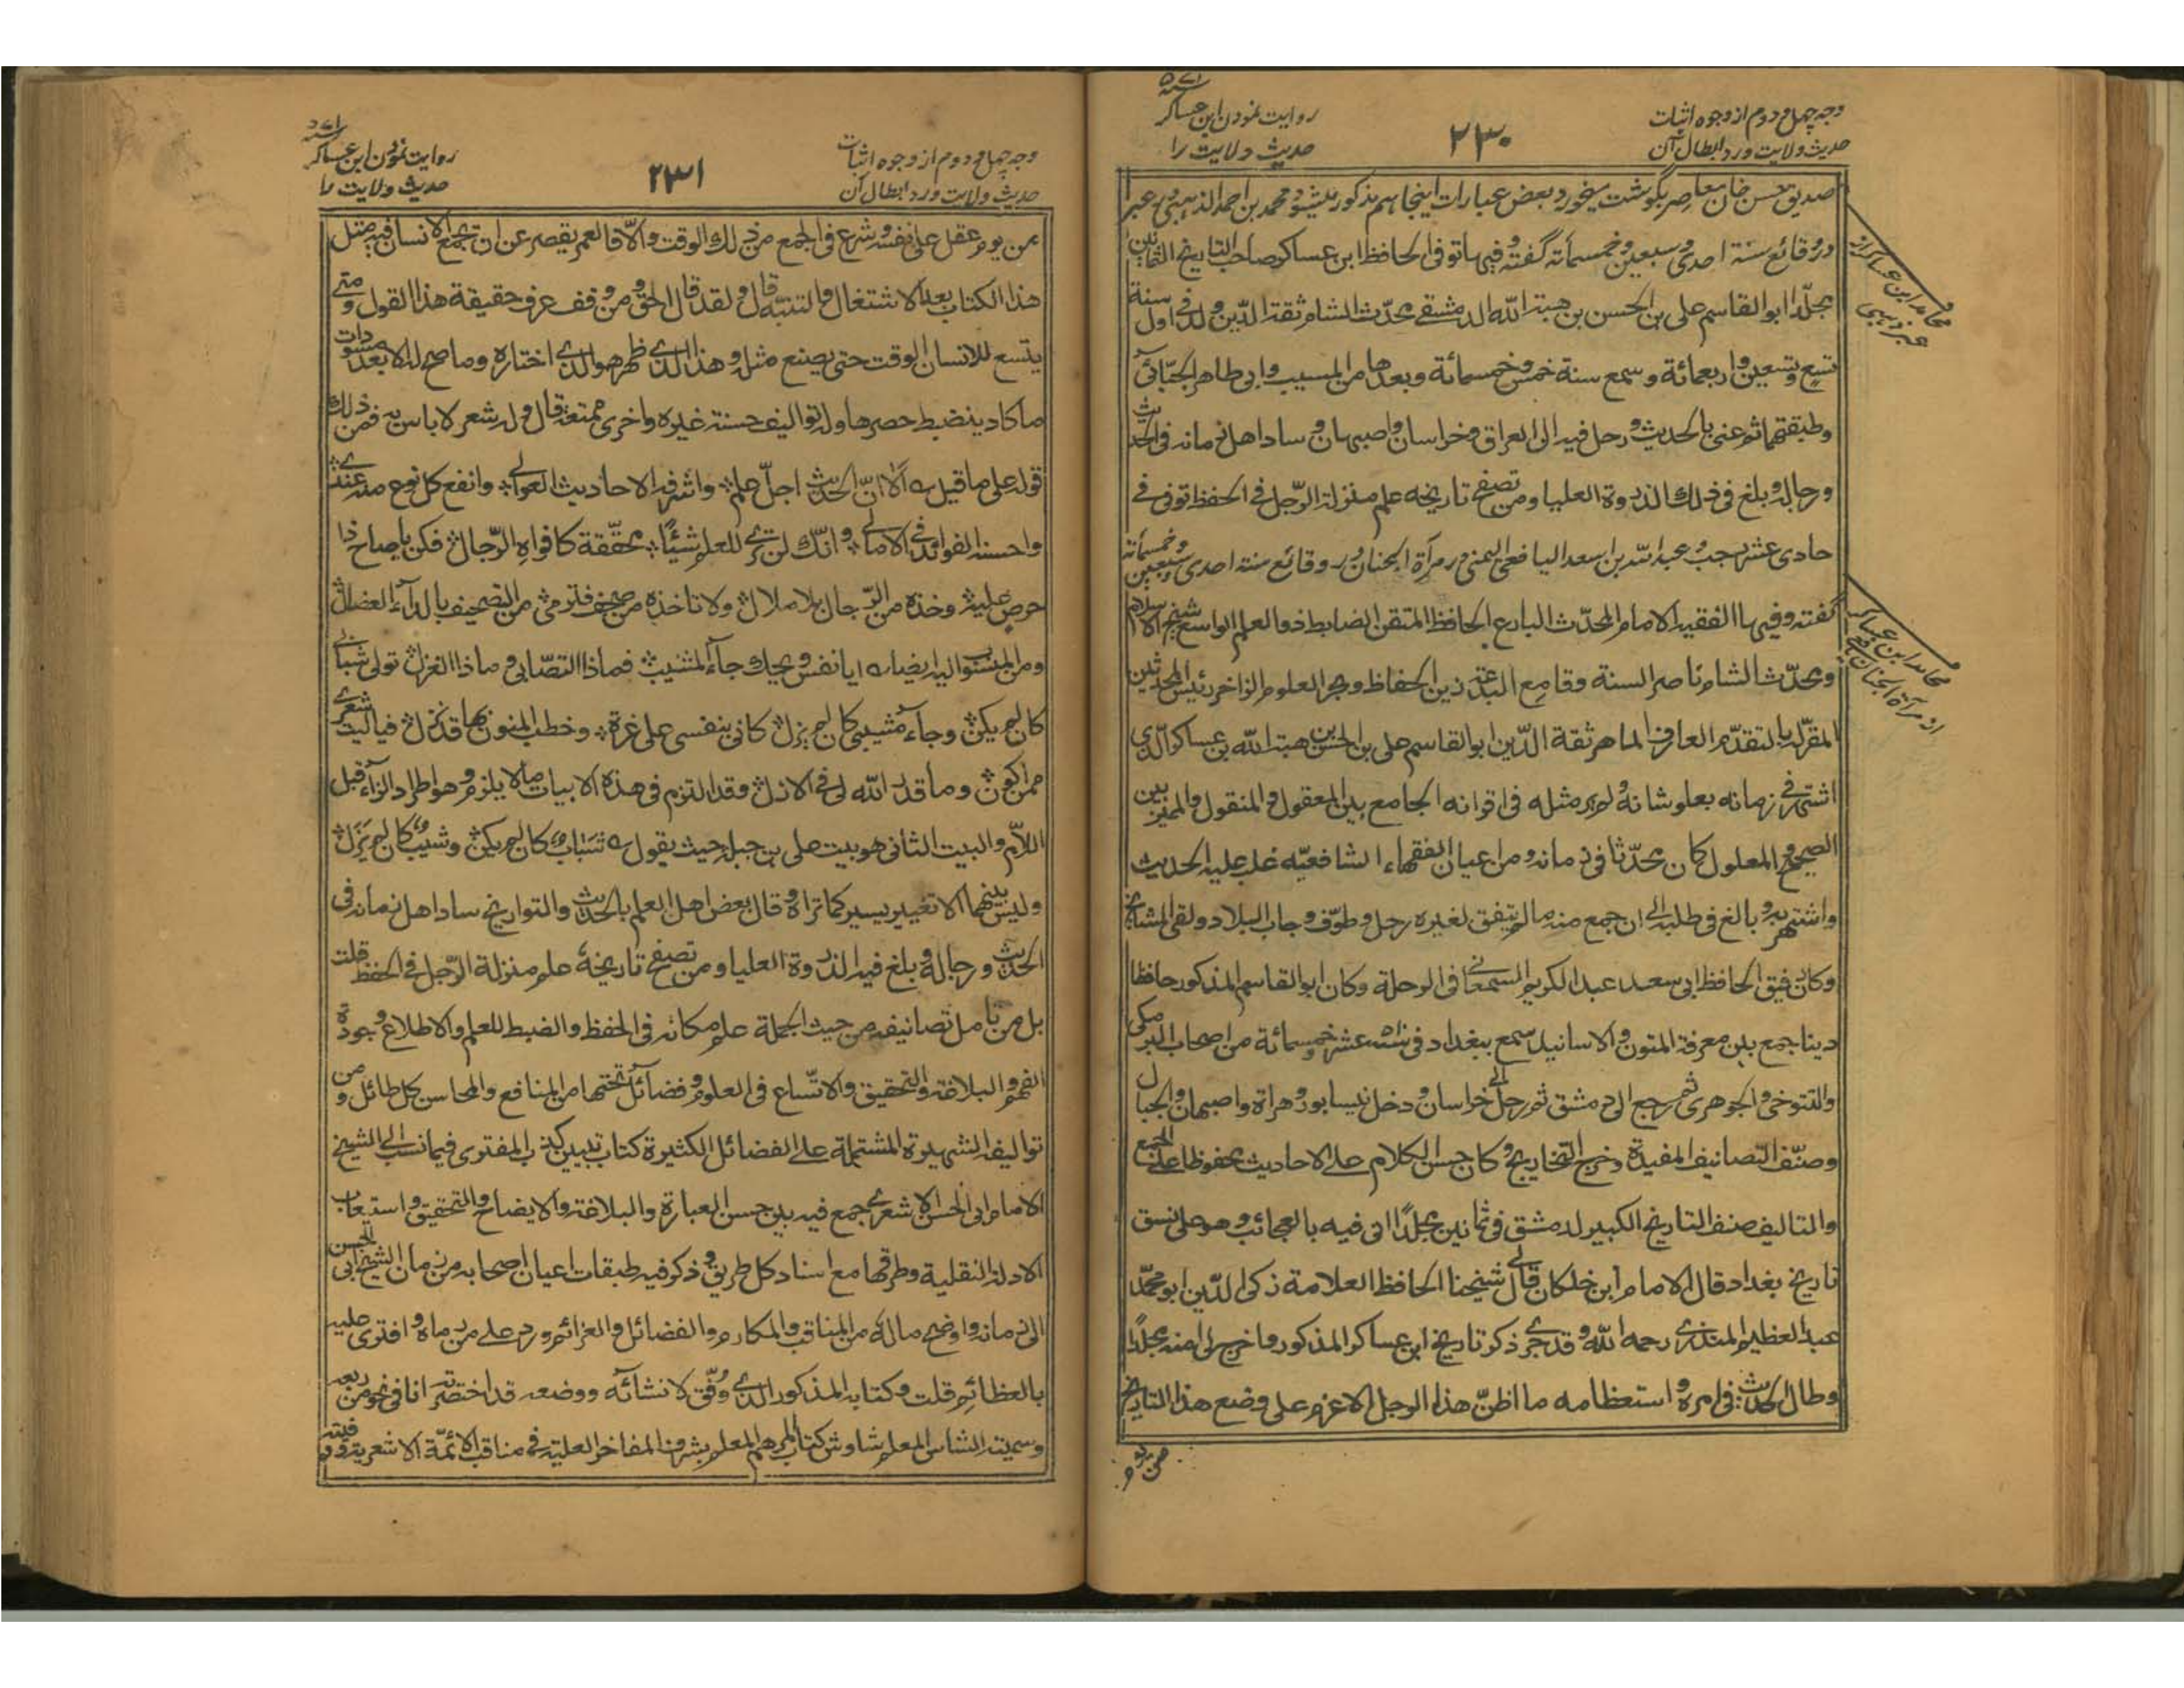 وجه چهل و دوم از وجوه اثبات
حدیث ولایت ورد ابطال آن
۲۳۰
روایت نمودن ابن عساکر
حدیث ولایت را
صدیق حسن خان معاصر بگوشت میخورد بعض عبارات اینجا هم مذکور میشود محمد بن احمد الذهبی در عبر
در وقائع سنة احدی وسبعین وخمسمائة گفته وفیها توفی الحافظ ابن عساکر صاحب التاریخ الثمانین
مجلّدا ابو القاسم علی بن الحسن بن هبة الله الدمشقی محدّث الشام ثقة الدّین ولد فی اول سنة
تسع وتسعین واربعمائة وسمع سنة خمس وخمسمائة وبعدها من المسیب وابی طاهر الحنّائی
وطبقتهما ثم عنی بالحدیث ورحل فیه الی العراق وخراسان واصبهان وساد اهل زمانه فی الحدیث
ورجاله وبلغ فی ذلك الذروة العلیا ومن تصفح تاریخه علم منزلة الرّجل فی الحفظ توفی فی
حادی عشر رجب وعبد الله بن اسعد الیافعی الیمنی در مرآة الجنان در وقائع سنة احدی وسبعین وخمسمائة
گفته وفیها الفقیه الامام المحدّث البارع الحافظ المتقن الضابط ذو العلم الواسع شیخ الاسلام
ومحدّث الشام ناصر السنة وقامع البدعة زین الحفاظ وبحر العلوم الزاخر رئیس المحدثین
المقرّ له بالتقدّم العارف الماهر ثقة الدّین ابو القاسم علی بن الحسن بن هبة الله بن عساکر الّذی
اشتهر فی زمانه بعلو شانه ولم یر مثله فی اقرانه الجامع بین المعقول والمنقول والممیّز بین
الصحیح والمعلول کان محدّثا فی زمانه ومن اعیان الفقهاء الشافعیّه غلب علیه الحدیث
واشتهر به وبالغ فی طلبه الی ان جمع منه ما لم یتفق لغیره رحل وطوّف وجاب البلاد ولقی المشایخ
وکان رفیق الحافظ ابی سعد عبد الکریم السمعانی فی الرحلة وکان ابو القاسم المذکور حافظا
دینا جمع بین معرفة المتون والاسانید سمع ببغداد فی سنة عشر وخمسمائة من اصحاب البرمکی
والتنوخی والجوهری ثم رجع الی دمشق ثم رحل الی خراسان ودخل نیسابور وهراة واصبهان والجبال
وصنّف التصانیف المفیدة وخرج التخاریج وکان حسن الکلام علی الاحادیث محفوظا علی الجمع
والتالیف صنف التاریخ الکبیر لدمشق فی ثمانین مجلّدًا اتی فیه بالعجائب وهو علی نسق
تاریخ بغداد قال الامام ابن خلکان قال لی شیخنا الحافظ العلامة زکی الدّین ابو محمّد
عبد العظیم المنذری رحمه الله وقد جری ذکر تاریخ ابن عساکر المذکور فاخرج لی منه مجلّدًا
وطال الحدیث فی امره واستعظامه ما اظنّ هذا الرجل الا عزم علی وضع هذا التاریخ
محامد ابن عساکر از
عبر ذهبی
محامد ابن عساکر
از مرآة الجنان
وجه چهل و دوم از وجوه اثبات
حدیث ولایت ورد ابطال آن
۲۳۱
روایت نمودن ابن عساکر
حدیث ولایت را
من یوم عقل علی نفسه وشرع فی الجمع من ذلك الوقت والّا فالعمر یقصر عن ان یجمع الانسان فیه مثل
هذا الکتاب بعد الاشتغال والتنبّه قال ولقد قال الحق ومن وقف عرف حقیقة هذا القول ومتی
یتسع للانسان الوقت حتی یصنع مثله وهذا الذی ظهر هو الذی اختاره وما صح له الا بعد مسودات
ما کاد ینضبط حصرها وله توالیف حسنة غیره واخری ممتعة قال وله شعر لا باس به فمن ذلك
قوله علی ما قیل الا انّ الحدیث اجلّ علم واشرفه الاحادیث العوالی وانفع کل نوع منه عندی
واحسنه الفوائد فی الامالی وانّك لن تری للعلم شیئًا یحقّقه کافواه الرّجال فکن یا صاح ذا
حرص علیه وخذه من الرّجال بلا ملال ولا تاخذه من صحف فترمی من التصحیف بالداء العضال
ومن المنسوب الیه ایضا ایا نفس ویحك جاء المشیب فماذا التصابی وماذا الغزل تولی شبابی
کان لم یکن وجاء مشیبی کان لم یزل کانی بنفسی علی غرة وخطب المنون بها قد نزل فیا لیت شعری
ممن اکون وما قدر الله لی فی الازل وقد التزم فی هذه الابیات ما لا یلزم وهو اطراد الزاء قبل
اللام والبیت الثانی هو بیت علی بن جبلة حیث یقول شباب کان لم یکن وشیب کان لم یزل
ولیس بینهما الا تغییر یسیر کما تراه وقال بعض اهل العلم بالحدیث والتواریخ ساد اهل زمانه فی
الحدیث ورجاله وبلغ فیه الذروة العلیا ومن تصفح تاریخه علم منزلة الرّجل فی الحفظ قلت
بل من تامل تصانیفه من حیث الجملة علم مکانه فی الحفظ والضبط للعلم والاطلاع وجودة
الفهم والبلاغة والتحقیق والاتّساع فی العلوم وفضائل تحتها من المنافع والمحاسن کل طائل ومن
توالیفه الشهیرة المشتملة علی الفضائل الکثیرة کتاب تبیین کذب المفتری فیما نسب الی الشیخ
الامام ابی الحسن الاشعری جمع فیه بین حسن العبارة والبلاغة والایضاح والتحقیق واستیعاب
الادلة النقلیة وطرقها مع اسناد کل طریق وذکر فیه طبقات اعیان اصحابه من زمان الشیخ ابی الحسن
الی زمانه واوضح ماله من المناقب والمکارم والفضائل والعزائم ورد علی من رماه وافتری علیه
بالعظائم قلت وکتابه المذکور الذی وُفّق لانشائه ووضعه قد اختصرته انا فی نحو من ربعه
وسمیته الشاس المعلم شاوش کتاب المرهم المعلم بشرف المفاخر العلیة فی مناقب الائمّة الاشعریة